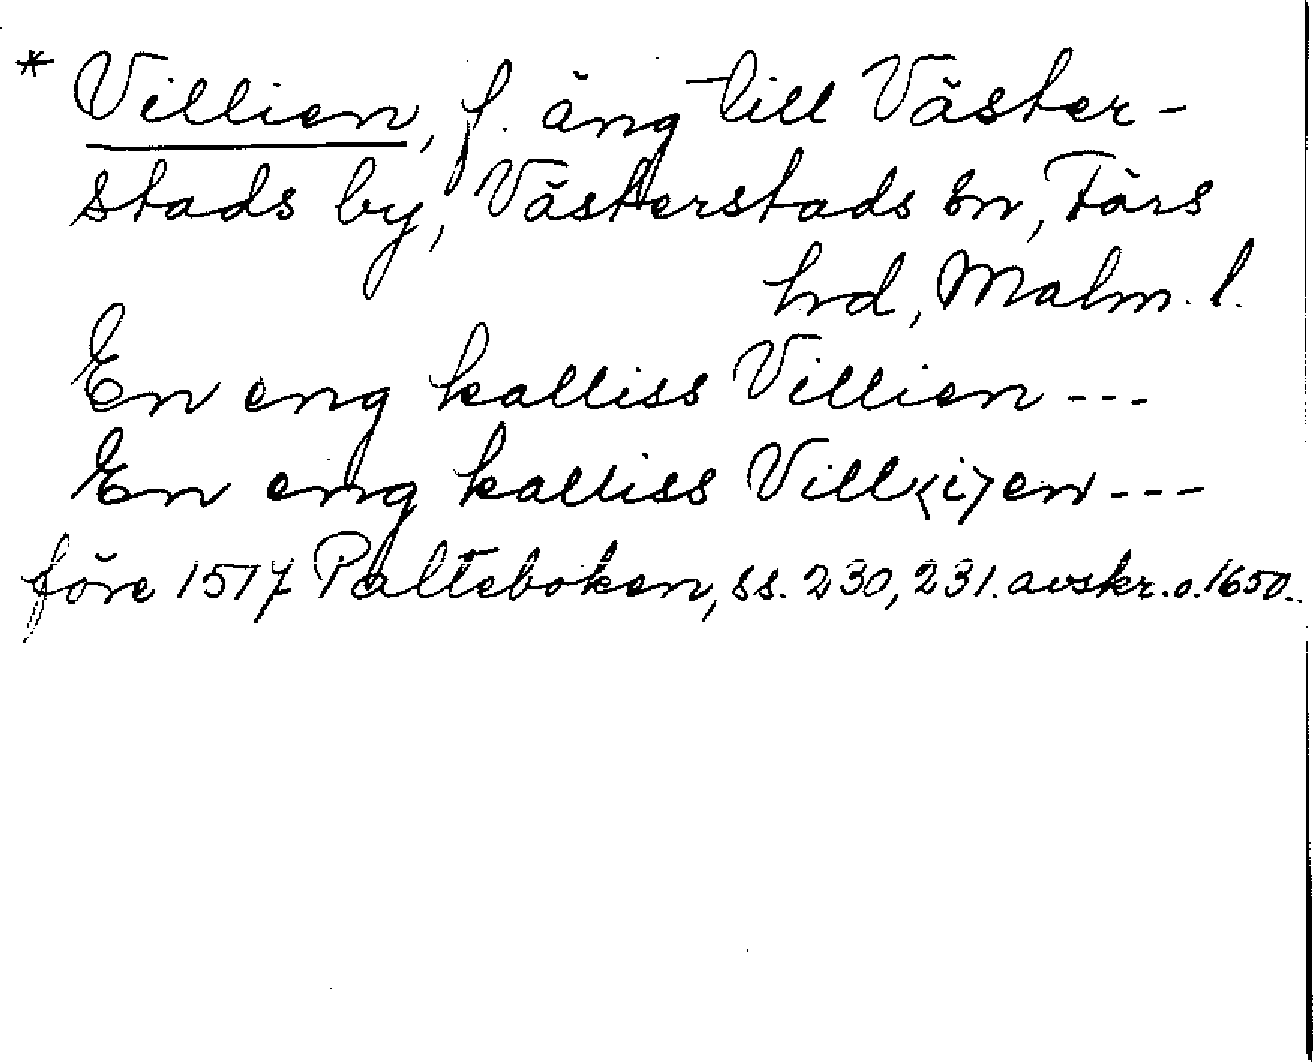 * Villien, f. äng till Väster-
stads by, Västerstads sn, Färs
hrd, Malm. l.
En eng kalliss Villien ---
En eng kalliss Vill<i>en ---
före 1517 Palteboken, ss. 230, 231. avskr. o. 1650.